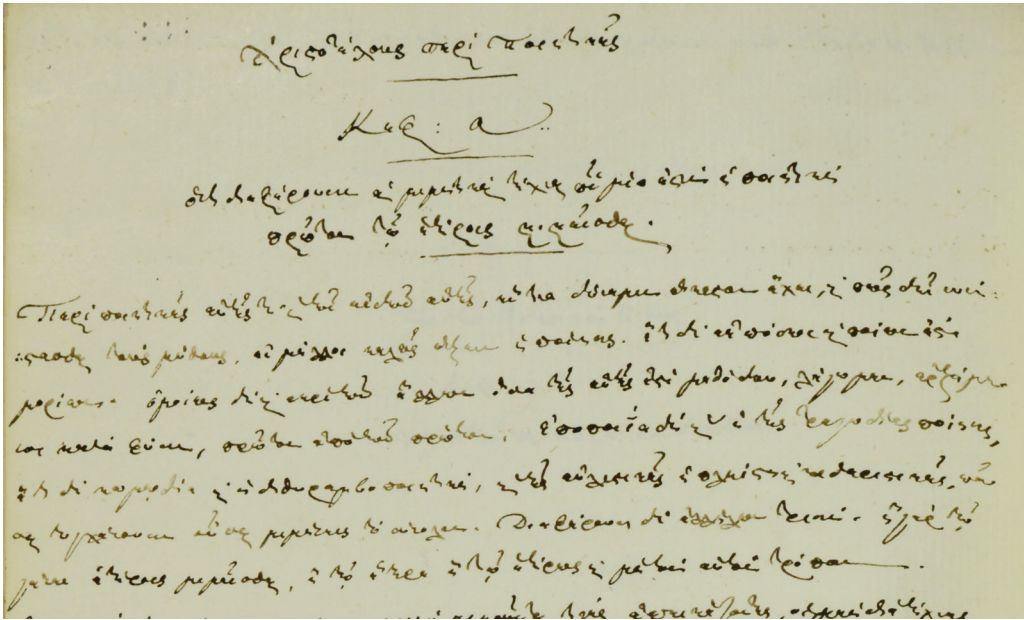 Ἀριστοτέλους περὶ Ποιητικῆς
Κεφ: α..
ὅτι διαφέρουσιν αἱ μιμητικαὶ τέχναι ὧν μία ἐστὶ ἡ ποιητικὴ
πρῶτον τῷ ἑτέροις μιμεῖσθαι.
Περὶ ποιητικῆς αὐτῆς τε καὶ τῶν εἰδῶν αὐτῆς, ἥντινα δύναμιν ἕκαστον ἔχει, καὶ πῶς δεῖ συνί-
στασθαι τοὺς μύθους, εἰ μέλλει καλῶς ἕξειν ἡ ποίησις. ἔτι δὲ ἐκ πόσων καὶ ποίων ἐστὶ
μορίων. ὁμοίως δὲ καὶ περὶ τῶν ἄλλων ὅσα τῆς αὐτῆς ἐστι μεθόδου, λέγωμεν, ἀρξάμε-
νοι κατὰ φύσιν, πρῶτον ἀπὸ τῶν πρώτων. Ἐποποιΐα δὴ καὶ ἡ τῆς τραγῳδίας ποίησις,
ἔτι δὲ κωμῳδία καὶ ἡ διθυραμβοποιητική, καὶ τῆς αὐλητικῆς ἡ πλείστη καὶ κιθαριστικῆς, πᾶ-
σαι τυγχάνουσιν οὖσαι μιμήσεις τὸ σύνολον. Διαφέρουσι δὲ ἀλλήλων τρισί. ἢ γὰρ τῷ
γένει ἑτέροις μιμεῖσθαι, ἢ τῷ ἕτερα ἢ τῷ ἑτέρως καὶ μὴ τὸν αὐτὸν τρόπον.